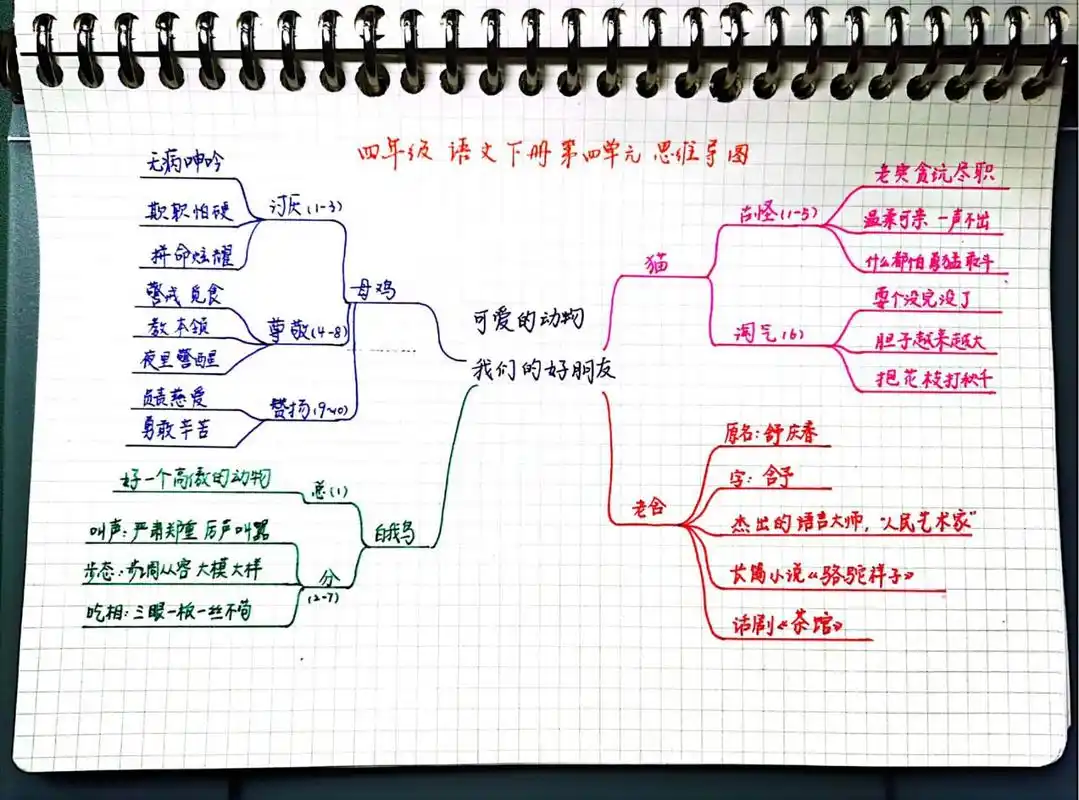 四年级 语文下册 第四单元 思维导图
可爱的动物
我们的好朋友
母鸡
讨厌(1-3)
无病呻吟
欺软怕硬
拼命炫耀
尊敬(4-8)
警戒 觅食
教本领
夜里警醒
赞扬(9-10)
负责慈爱
勇敢辛苦
白鹅
总(1)
好一个高傲的动物
分
(2-7)
叫声:严肃郑重 厉声叫嚣
步态:步调从容 大模大样
吃相:三眼一板一丝不苟
猫
古怪(1-5)
老实贪玩尽职
温柔可亲 一声不出
什么都怕 勇猛敢斗
淘气(6)
耍个没完没了
胆子越来越大
抱花枝打秋千
老舍
原名:舒庆春
字:舍予
杰出的语言大师,“人民艺术家”
长篇小说《骆驼祥子》
话剧《茶馆》